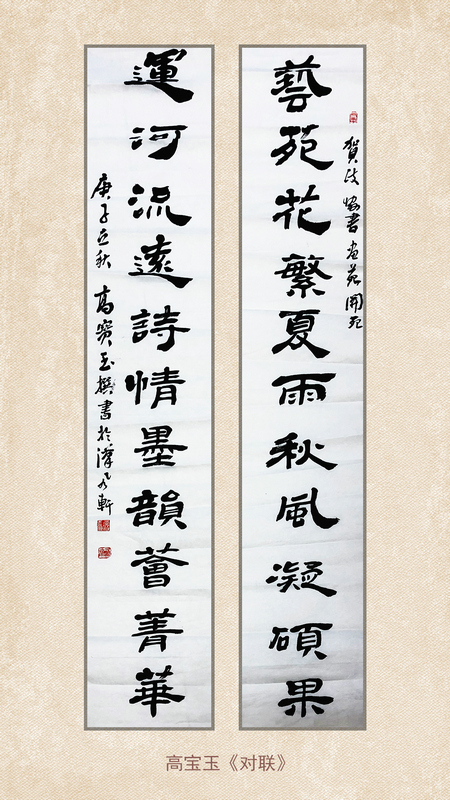 藝苑花繁夏雨秋風凝碩果
賀政協書畫苑開苑
運河流遠詩情墨韻薈菁華
庚子立秋 高寶玉撰書於 軒
高宝玉《对联》